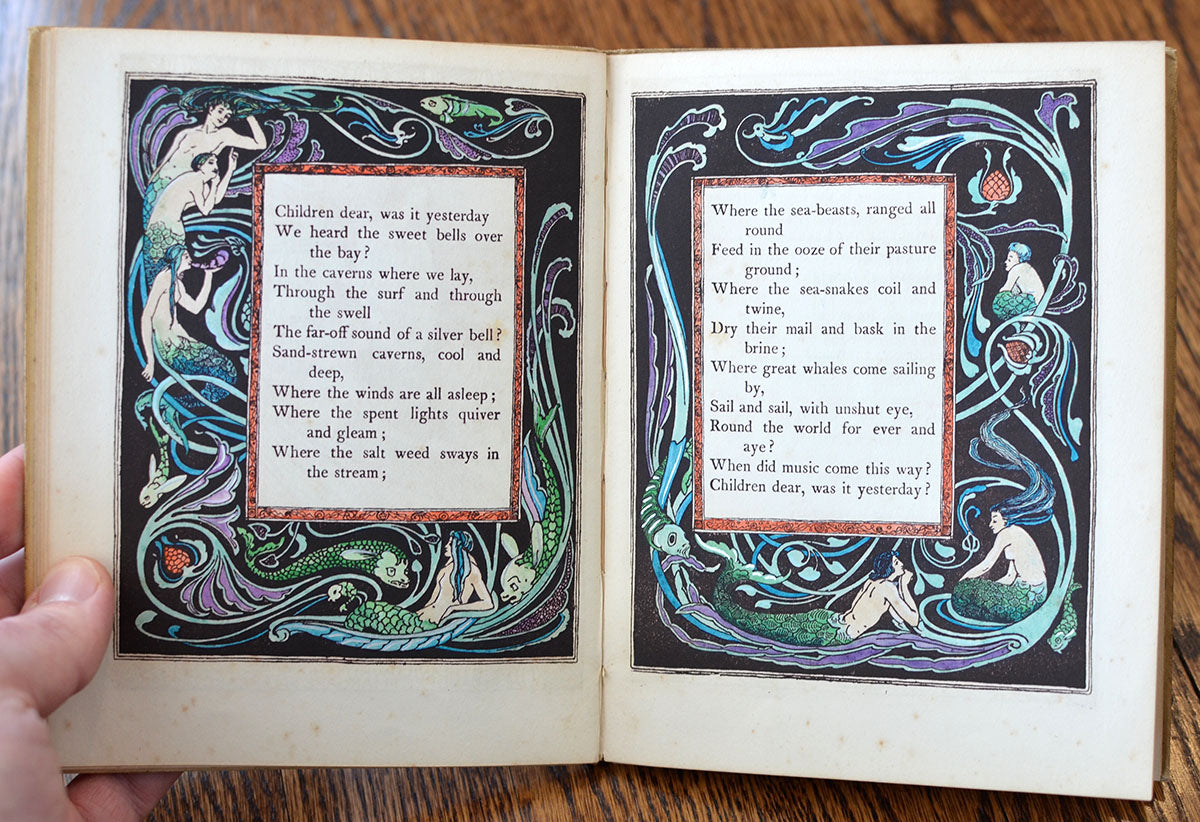 Children dear, was it yesterday
We heard the sweet bells over
the bay?
In the caverns where we lay,
Through the surf and through
the swell
The far-off sound of a silver bell?
Sand-strewn caverns, cool and
deep,
Where the winds are all asleep;
Where the spent lights quiver
and gleam;
Where the salt weed sways in
the stream;
Where the sea-beasts, ranged all
round
Feed in the ooze of their pasture
ground;
Where the sea-snakes coil and
twine,
Dry their mail and bask in the
brine;
Where great whales come sailing
by,
Sail and sail, with unshut eye,
Round the world for ever and
aye?
When did music come this way?
Children dear, was it yesterday?